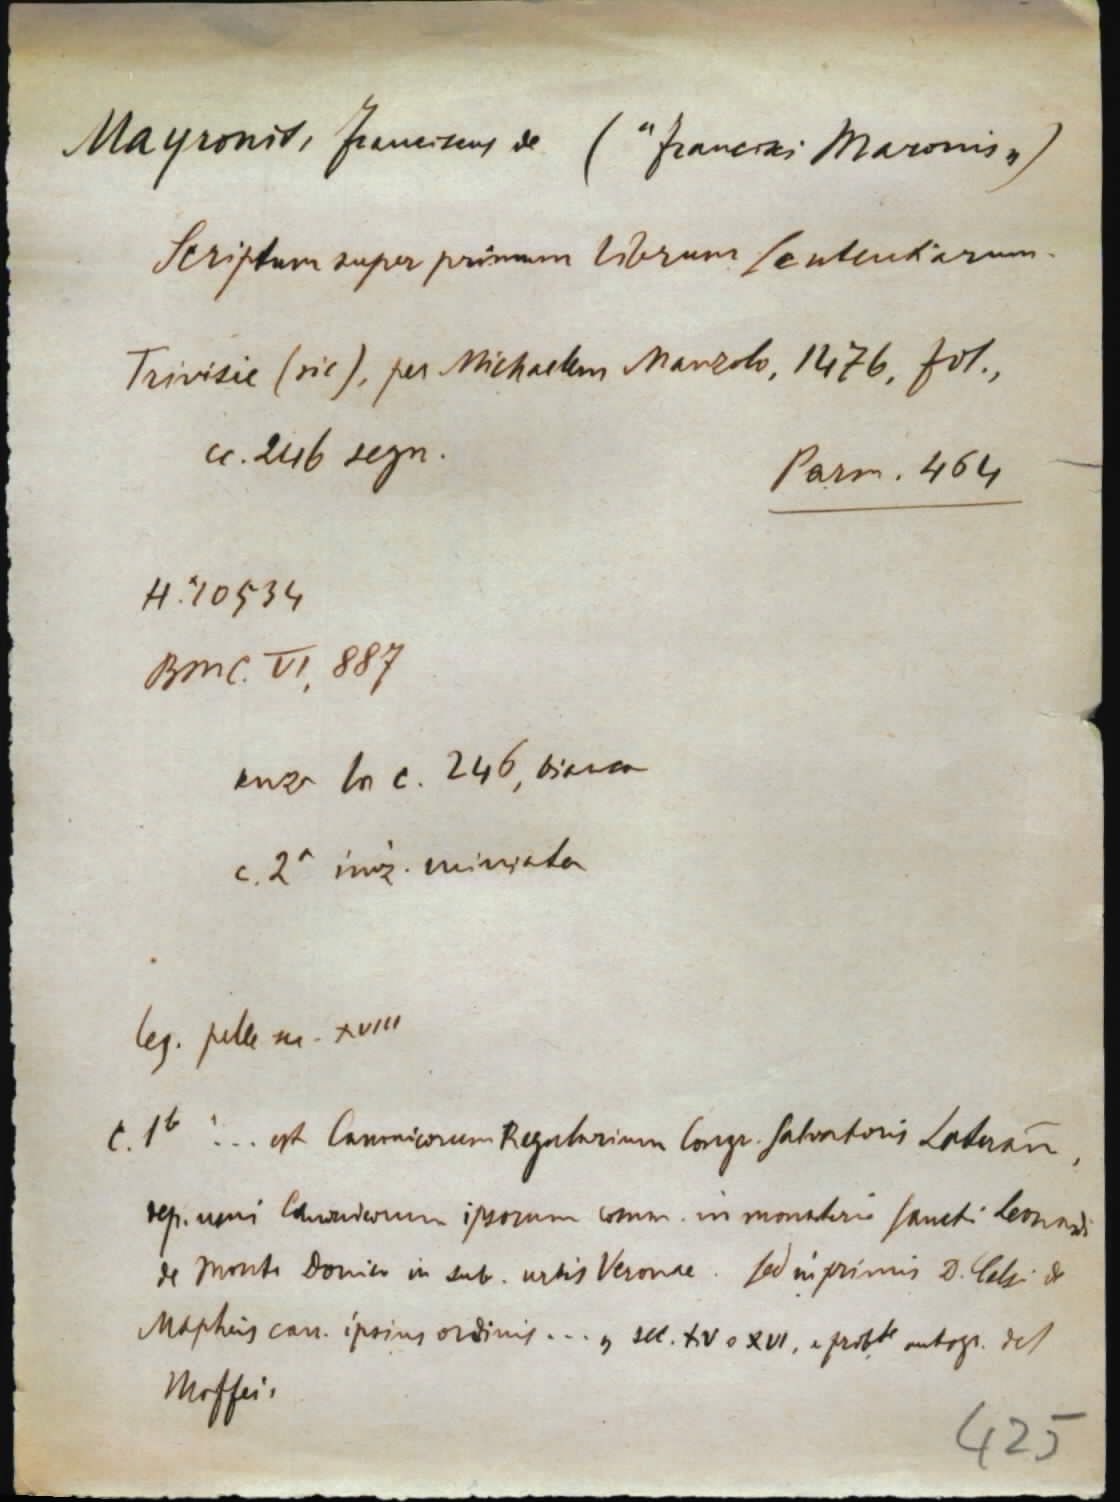 Mayronis, Franciscus de ("Francisci Maronis")
Scriptum super primum librum Sententiarum.
Trivisie (sic), per Michaelem Manzolo, 1476, fol.,
cc. 246 segn.
Parm. 464
H.*10534
BMC. VI, 887
senza la c. 246, bianca
c. 2ª iniz. miniata
leg. pelle sec. XVIII
c. 1b "... est Canonicorum Regularium Congr. Salvatoris Lateran̄,
dep. usui Canonicorum ipsorum comm. in monasterio Sancti Leonardi
de Monte Donico in sub. urbis Veronae. Sed inprimis D. Celsi de
Mapheis can. ipsius ordinis ... „ sec. XV o XVI, e probte autogr. del
Maffei.
425